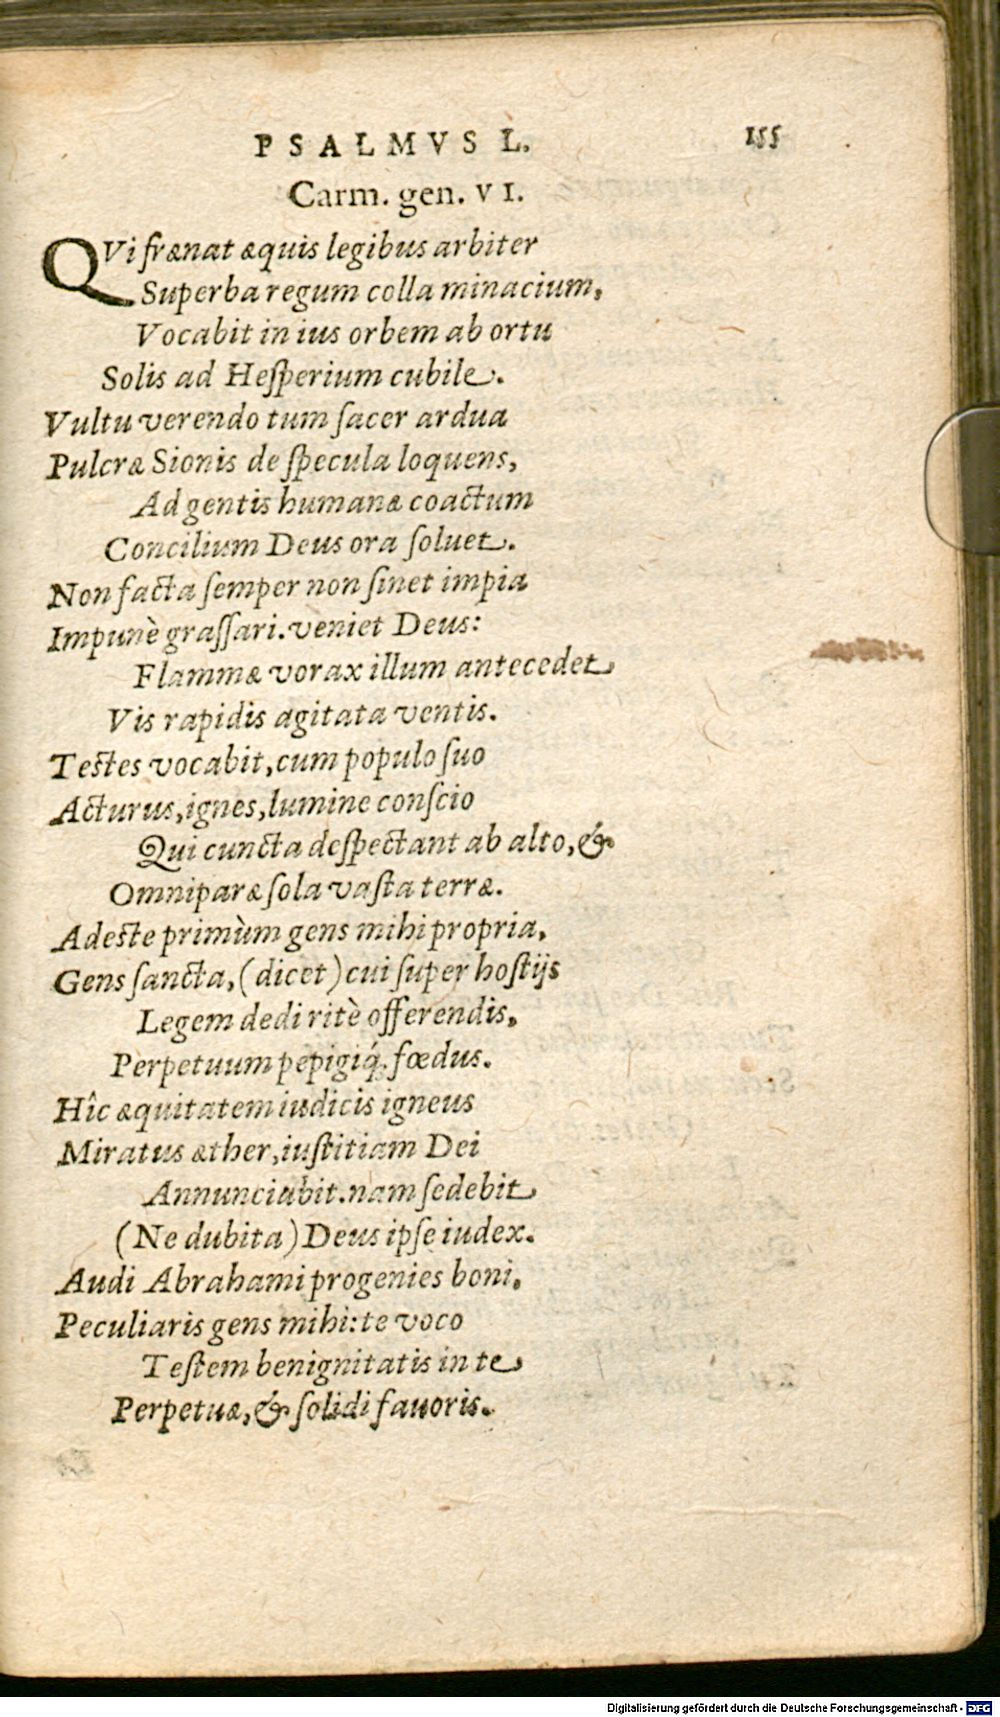 PSALMVS L. 155
Carm. gen. VI.
QVi frænat æquis legibus arbiter
Superba regum colla minacium,
Vocabit in ius orbem ab ortu
Solis ad Hesperium cubile.
Vultu verendo tum sacer ardua
Pulcræ Sionis de specula loquens,
Ad gentis humanæ coactum
Concilium Deus ora soluet.
Non facta semper non sinet impia
Impunè grassari. veniet Deus:
Flammæ vorax illum antecedet
Vis rapidis agitata ventis.
Testes vocabit, cum populo suo
Acturus, ignes, lumine conscio
Qui cuncta despectant ab alto, &
Omniparæ sola vasta terræ.
Adeste primùm gens mihi propria,
Gens sancta, (dicet) cui super hostijs
Legem dedi ritè offerendis,
Perpetuum pepigiq́; fœdus.
Hîc æquitatem iudicis igneus
Miratus æther, iustitiam Dei
Annunciabit. nam sedebit
(Ne dubita) Deus ipse iudex.
Audi Abrahami progenies boni,
Peculiaris gens mihi: te voco
Testem benignitatis in te
Perpetuæ, & solidi fauoris.
Digitalisierung gefördert durch die Deutsche Forschungsgemeinschaft - DFG